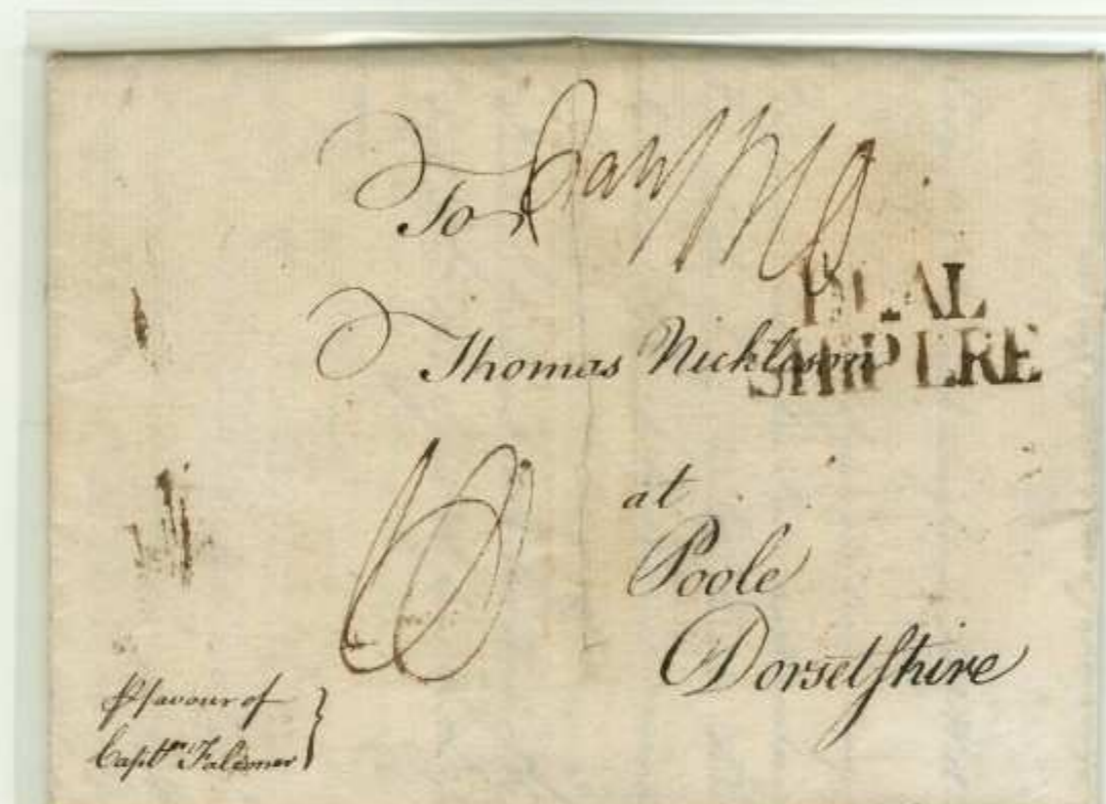 To
DEAL
SHIP LRE
Thomas
at
Poole
Dorsetshire
6
P favour of
Captn Falconer